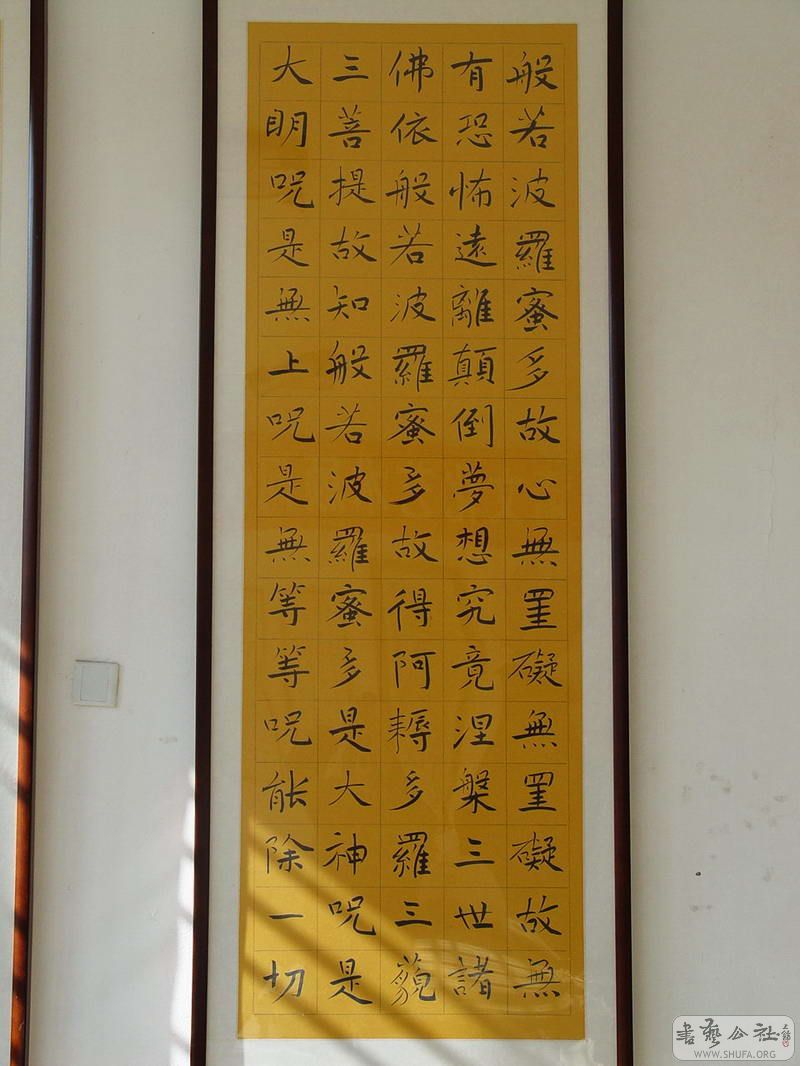 般若波羅蜜多故心無罣礙無罣礙故無
有恐怖遠離顛倒夢想究竟涅槃三世諸
佛依般若波羅蜜多故得阿耨多羅三藐
三菩提故知般若波羅蜜多是大神呪是
大明呪是無上呪是無等等呪能除一切
書藝公社
WWW.SHUFA.ORG